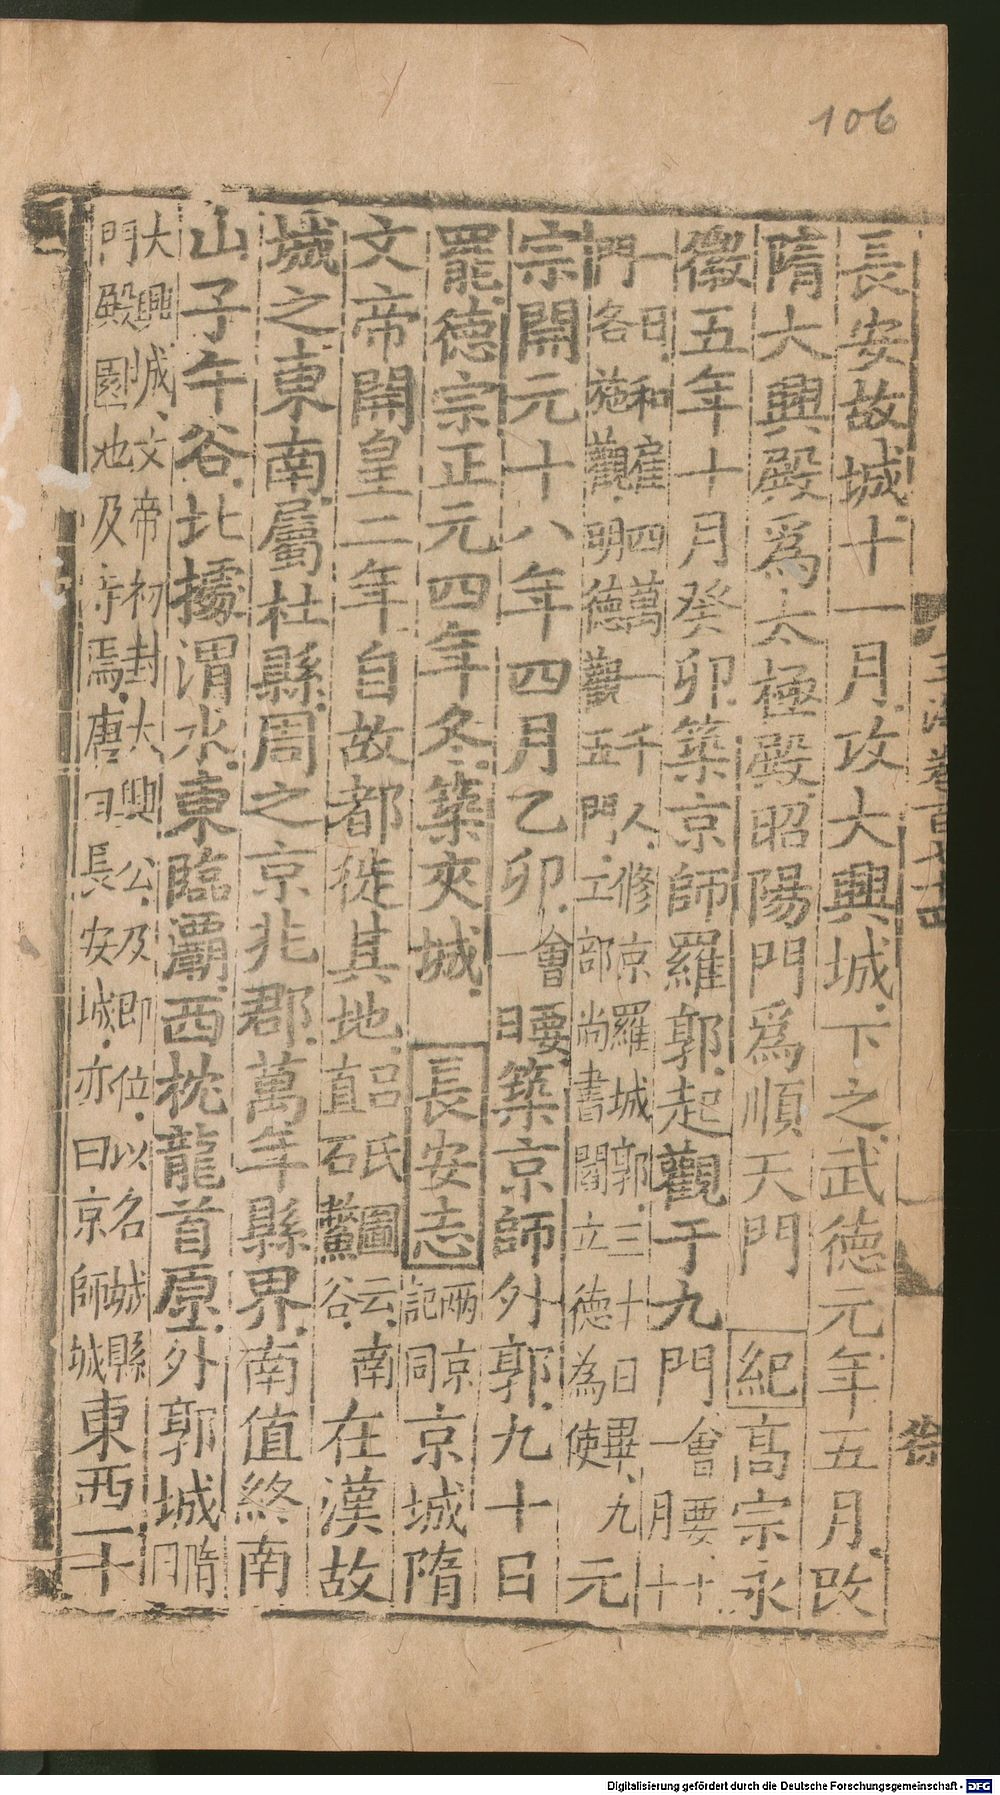 106
長安故城十一月攻大興城下之武德元年五月改
隋大興殿爲太極殿昭陽門爲順天門紀高宗永
徽五年十月癸卯築京師羅郭起觀于九門會要十一月十
一日和雇四萬一千人修京羅城郭三十日畢九
門各施觀明德觀五門工部尚書閻立德為使元
宗開元十八年四月乙卯會要一日築京師外郭九十日
罷德宗正元四年冬築夾城長安志兩京記同京城隋
文帝開皇二年自故都徙其地呂氏圖云南直石鱉谷在漢故
城之東南屬杜縣周之京兆郡萬年縣界南值終南
山子午谷北據渭水東臨灞西枕龍首原外郭城隋曰
大興城文帝初封大興公及即位以名城縣
門殿園池及寺焉唐曰長安城亦曰京師城東西一十
Digitalisierung gefördert durch die Deutsche Forschungsgemeinschaft - DFG